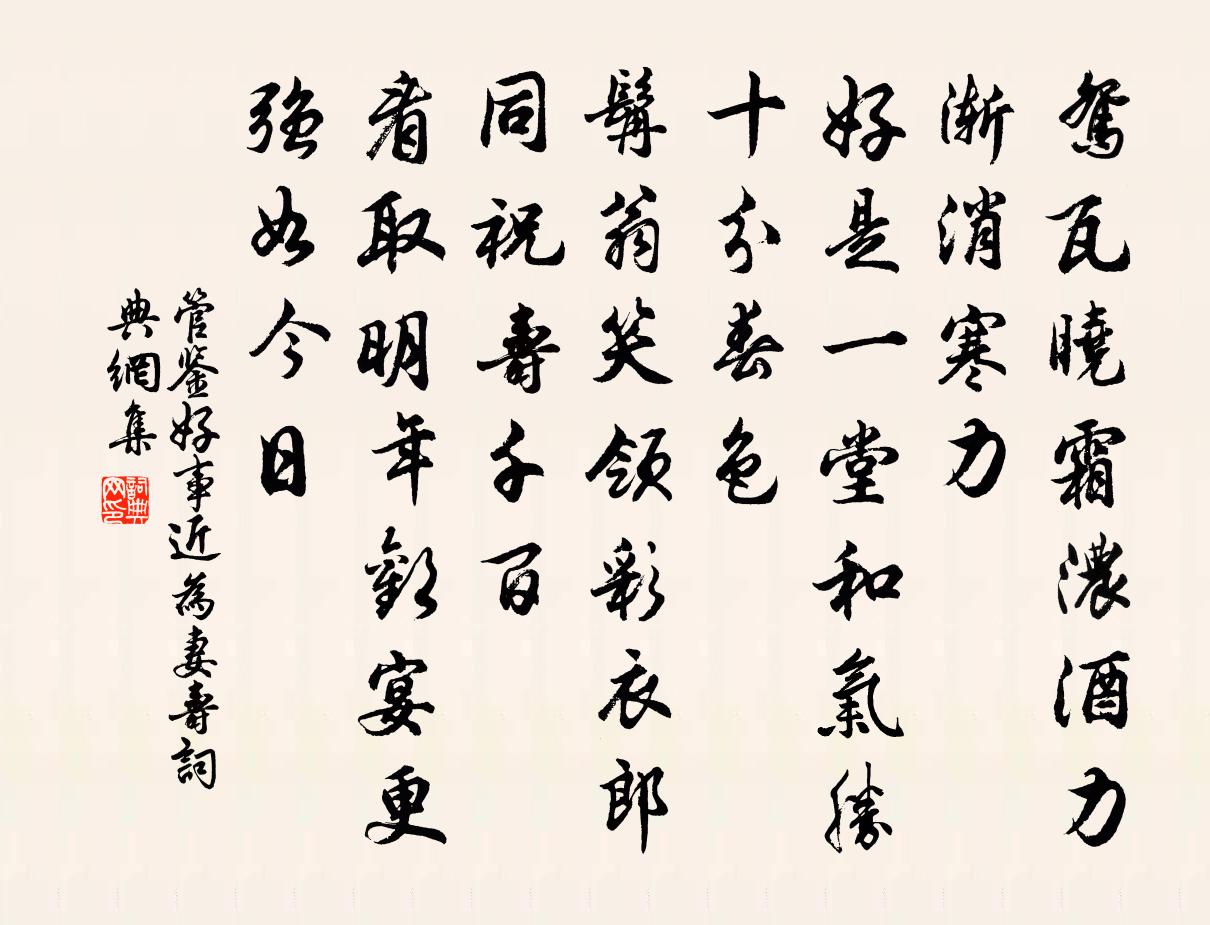 鴛瓦曉霜濃酒力
漸消寒力
好是一堂和氣勝
十分春色
髯翁笑領彩衣郎
同祝壽千百
看取明年歡宴更
強如今日
管鉴好事近為妻壽詞
典網集
詞典
网印